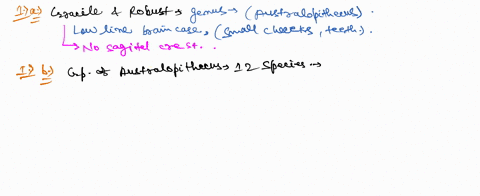 1) a) Gracile & Robust → genus → (Australopithecus).
Low line brain case, (Small cheeks, teeth).
→ No sagital crest..
1) b) Gp. of Australopithecus → 12 Species →